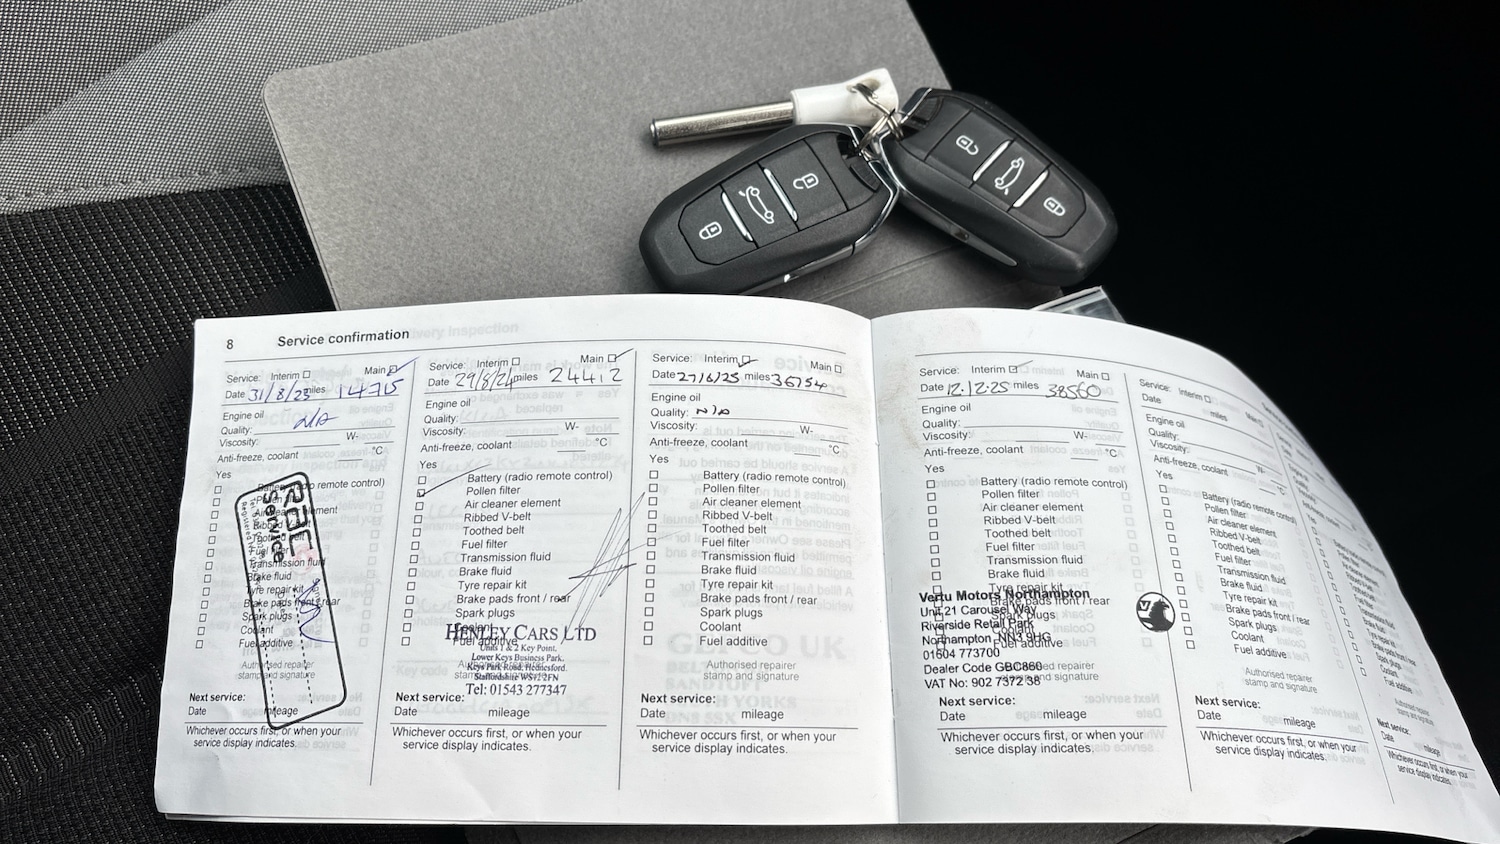 8 Service confirmation
Service: Interim Main
Date 31/8/23 miles 14715
Engine oil
Quality: N/A
Viscosity: W-
Anti-freeze, coolant °C
Yes
Battery (radio remote control)
Pollen filter
Air cleaner element
Ribbed V-belt
Toothed belt
Fuel filter
Transmission fluid
Brake fluid
Tyre repair kit
Brake pads front / rear
Spark plugs
Coolant
Fuel additive
Service
Authorised repairer
stamp and signature
Next service:
Date mileage
Whichever occurs first, or when your
service display indicates.
Service: Interim Main
Date 29/8/24 miles 24412
Engine oil
Quality:
Viscosity: W-
Anti-freeze, coolant °C
Yes
Battery (radio remote control)
Pollen filter
Air cleaner element
Ribbed V-belt
Toothed belt
Fuel filter
Transmission fluid
Brake fluid
Tyre repair kit
Brake pads front / rear
Spark plugs
Coolant
Fuel additive
HENLEY CARS LTD
Units 1 & 2 Key Point,
Lower Keys Business Park,
Keys Park Road, Hednesford,
Staffordshire WS12 2FN
Tel: 01543 277347
Authorised repairer
stamp and signature
Next service:
Date mileage
Whichever occurs first, or when your
service display indicates.
Service: Interim Main
Date 27/6/25 miles 36754
Engine oil
Quality: N/A
Viscosity: W-
Anti-freeze, coolant °C
Yes
Battery (radio remote control)
Pollen filter
Air cleaner element
Ribbed V-belt
Toothed belt
Fuel filter
Transmission fluid
Brake fluid
Tyre repair kit
Brake pads front / rear
Spark plugs
Coolant
Fuel additive
Authorised repairer
stamp and signature
Next service:
Date mileage
Whichever occurs first, or when your
service display indicates.
Service: Interim Main
Date 12.12.25 miles 38560
Engine oil
Quality:
Viscosity: W-
Anti-freeze, coolant °C
Yes
Battery (radio remote control)
Pollen filter
Air cleaner element
Ribbed V-belt
Toothed belt
Fuel filter
Transmission fluid
Brake fluid
Tyre repair kit
Brake pads front / rear
Spark plugs
Coolant
Fuel additive
Vertu Motors Northampton
Unit 21 Carousel Way
Riverside Retail Park
Northampton NN3 9HG
01604 773700
Dealer Code GBC860
VAT No: 902 7372 38
Authorised repairer
stamp and signature
Next service:
Date mileage
Whichever occurs first, or when your
service display indicates.
Service: Interim Main
Date miles
Engine oil
Quality:
Viscosity: W-
Anti-freeze, coolant °C
Yes
Battery (radio remote control)
Pollen filter
Air cleaner element
Ribbed V-belt
Toothed belt
Fuel filter
Transmission fluid
Brake fluid
Tyre repair kit
Brake pads front / rear
Spark plugs
Coolant
Fuel additive
Authorised repairer
stamp and signature
Next service:
Date mileage
Whichever occurs first, or when your
service display indicates.
Next service:
Date mileage
Whichever occurs first, or when your
service display indicates.